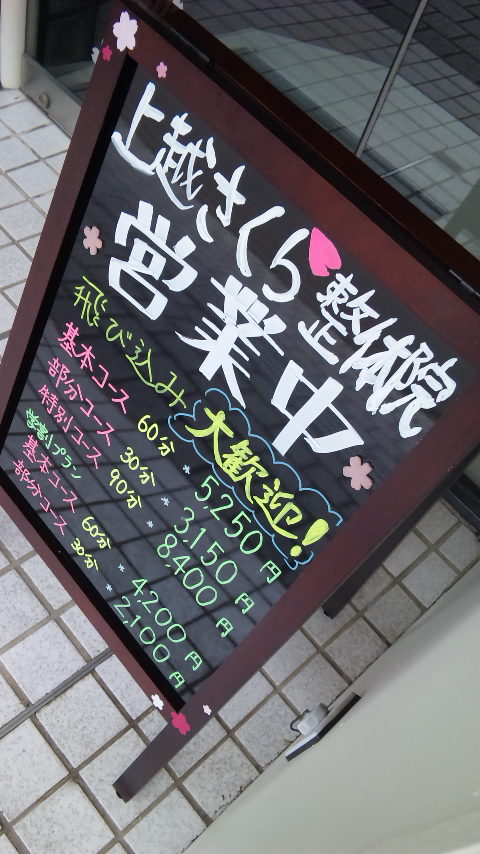 上越さくら整体院
営業中
飛び込み大歓迎!
基本コース 60分 * 5,250円
部分コース 30分 * 3,150円
特別コース 90分 * 8,400円
学割プラン
基本コース 60分 * 4,200円
部分コース 30分 * 2,100円